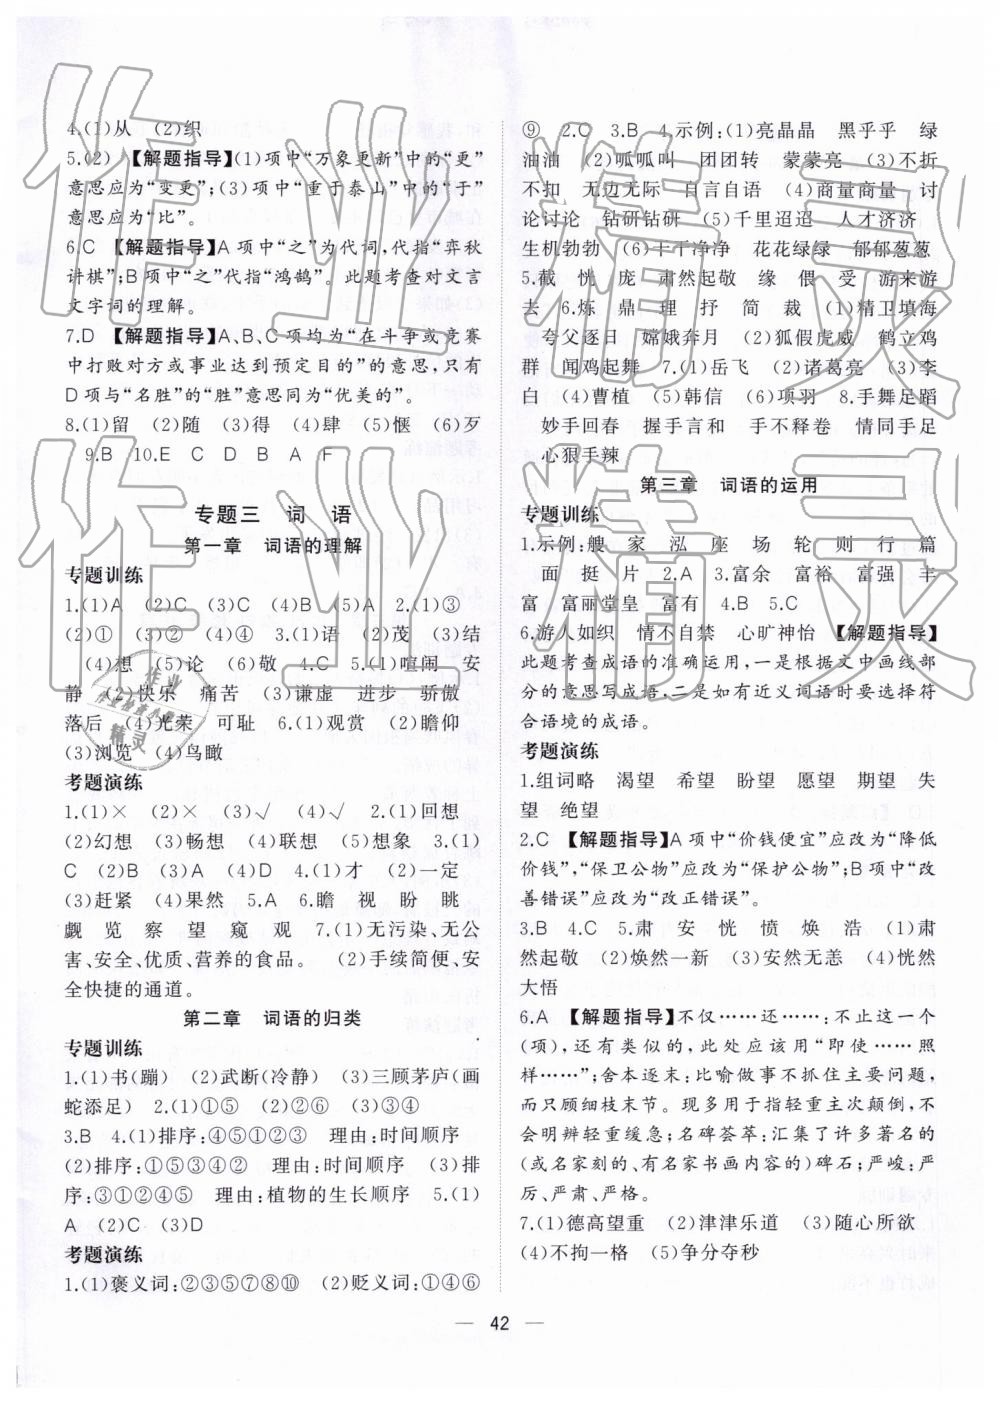 4.(1)从　(2)织
5.(2)　【解题指导】(1)项中“万象更新”中的“更”
意思应为“变更”;(3)项中“重于泰山”中的“于”
意思应为“比”。
6.C　【解题指导】A项中“之”为代词,代指“弈秋
讲棋”;B项中“之”代指“鸿鹄”。此题考查对文言
文字词的理解。
7.D　【解题指导】A、B、C项均为“在斗争或竞赛
中打败对方或事业达到预定目的”的意思,只有
D项与“名胜”的“胜”意思同为“优美的”。
8.(1)留　(2)随　(3)得　(4)肆　(5)惬　(6)歹
9.B　10.E　C　D　B　A　F
专题三　词　语
第一章　词语的理解
专题训练
1.(1)A　(2)C　(3)C　(4)B　(5)A　2.(1)③
(2)①　(3)②　(4)④　3.(1)语　(2)茂　(3)结
(4)想　(5)论　(6)敬　4.C　5.(1)喧闹　安
静　(2)快乐　痛苦　(3)谦虚　进步　骄傲
落后　(4)光荣　可耻　6.(1)观赏　(2)瞻仰
(3)浏览　(4)鸟瞰
考题演练
1.(1)×　(2)×　(3)√　(4)√　2.(1)回想
(2)幻想　(3)畅想　(4)联想　(5)想象　3.(1)
C　(2)B　(3)A　(4)D　4.(1)才　(2)一定
(3)赶紧　(4)果然　5.A　6.瞻　视　盼　眺
觑　览　察　望　窥　观　7.(1)无污染、无公
害、安全、优质、营养的食品。　(2)手续简便、安
全快捷的通道。
第二章　词语的归类
专题训练
1.(1)书(蹦)　(2)武断(冷静)　(3)三顾茅庐(画
蛇添足)　2.(1)①⑤　(2)②⑥　(3)③④
3.B　4.(1)排序:④⑤①②③　理由:时间顺序
(2)排序:①⑤③④②　理由:时间顺序　(3)排
序:③①②④⑤　理由:植物的生长顺序　5.(1)
A　(2)C　(3)D
考题演练
1.(1)褒义词:②③⑤⑦⑧⑩　(2)贬义词:①④⑥
⑨　2.C　3.B　4.示例:(1)亮晶晶　黑乎乎　绿
油油　(2)呱呱叫　团团转　蒙蒙亮　(3)不折
不扣　无边无际　自言自语　(4)商量商量　讨
论讨论　钻研钻研　(5)千里迢迢　人才济济
生机勃勃　(6)干干净净　花花绿绿　郁郁葱葱
5.截　恍　庞　肃然起敬　缘　偎　受　游来游
去　6.炼　鼎　理　抒　简　裁　(1)精卫填海
夸父逐日　嫦娥奔月　(2)狐假虎威　鹤立鸡
群　闻鸡起舞　7.(1)岳飞　(2)诸葛亮　(3)李
白　(4)曹植　(5)韩信　(6)项羽　8.手舞足蹈
妙手回春　握手言和　手不释卷　情同手足
心狠手辣
第三章　词语的运用
专题训练
1.示例:艘　家　泓　座　场　轮　则　行　篇
面　挺　片　2.A　3.富余　富裕　富强　丰
富　富丽堂皇　富有　4.B　5.C
6.游人如织　情不自禁　心旷神怡　【解题指导】
此题考查成语的准确运用,一是根据文中画线部
分的意思写成语,二是如有近义词语时要选择符
合语境的成语。
考题演练
1.组词略　渴望　希望　盼望　愿望　期望　失
望　绝望
2.C　【解题指导】A项中“价钱便宜”应改为“降低
价钱”,“保卫公物”应改为“保护公物”;B项中“改
善错误”应改为“改正错误”。
3.B　4.C　5.肃　安　恍　愤　焕　浩　(1)肃
然起敬　(2)焕然一新　(3)安然无恙　(4)恍然
大悟
6.A　【解题指导】不仅……还……:不止这一个
(项),还有类似的,此处应该用“即使……照
样……”;舍本逐末:比喻做事不抓住主要问题,
而只顾细枝末节。现多用于指轻重主次颠倒,不
会明辨轻重缓急;名碑荟萃:汇集了许多著名的
(或名家刻的、有名家书画内容的)碑石;严峻:严
厉、严肃、严格。
7.(1)德高望重　(2)津津乐道　(3)随心所欲
(4)不拘一格　(5)争分夺秒
— 42 —
作业精灵
作业精灵
作业
作业检查小助手
精灵